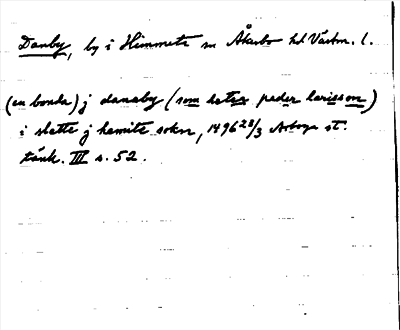 Danby, by i Himmeta sn Åkerbo hd Västm. l.
(en bonda) j danaby (som heter peder larisson)
i slatte j hemite sokn, 1496 28/3 Arboga st:
tänk. III s. 52.